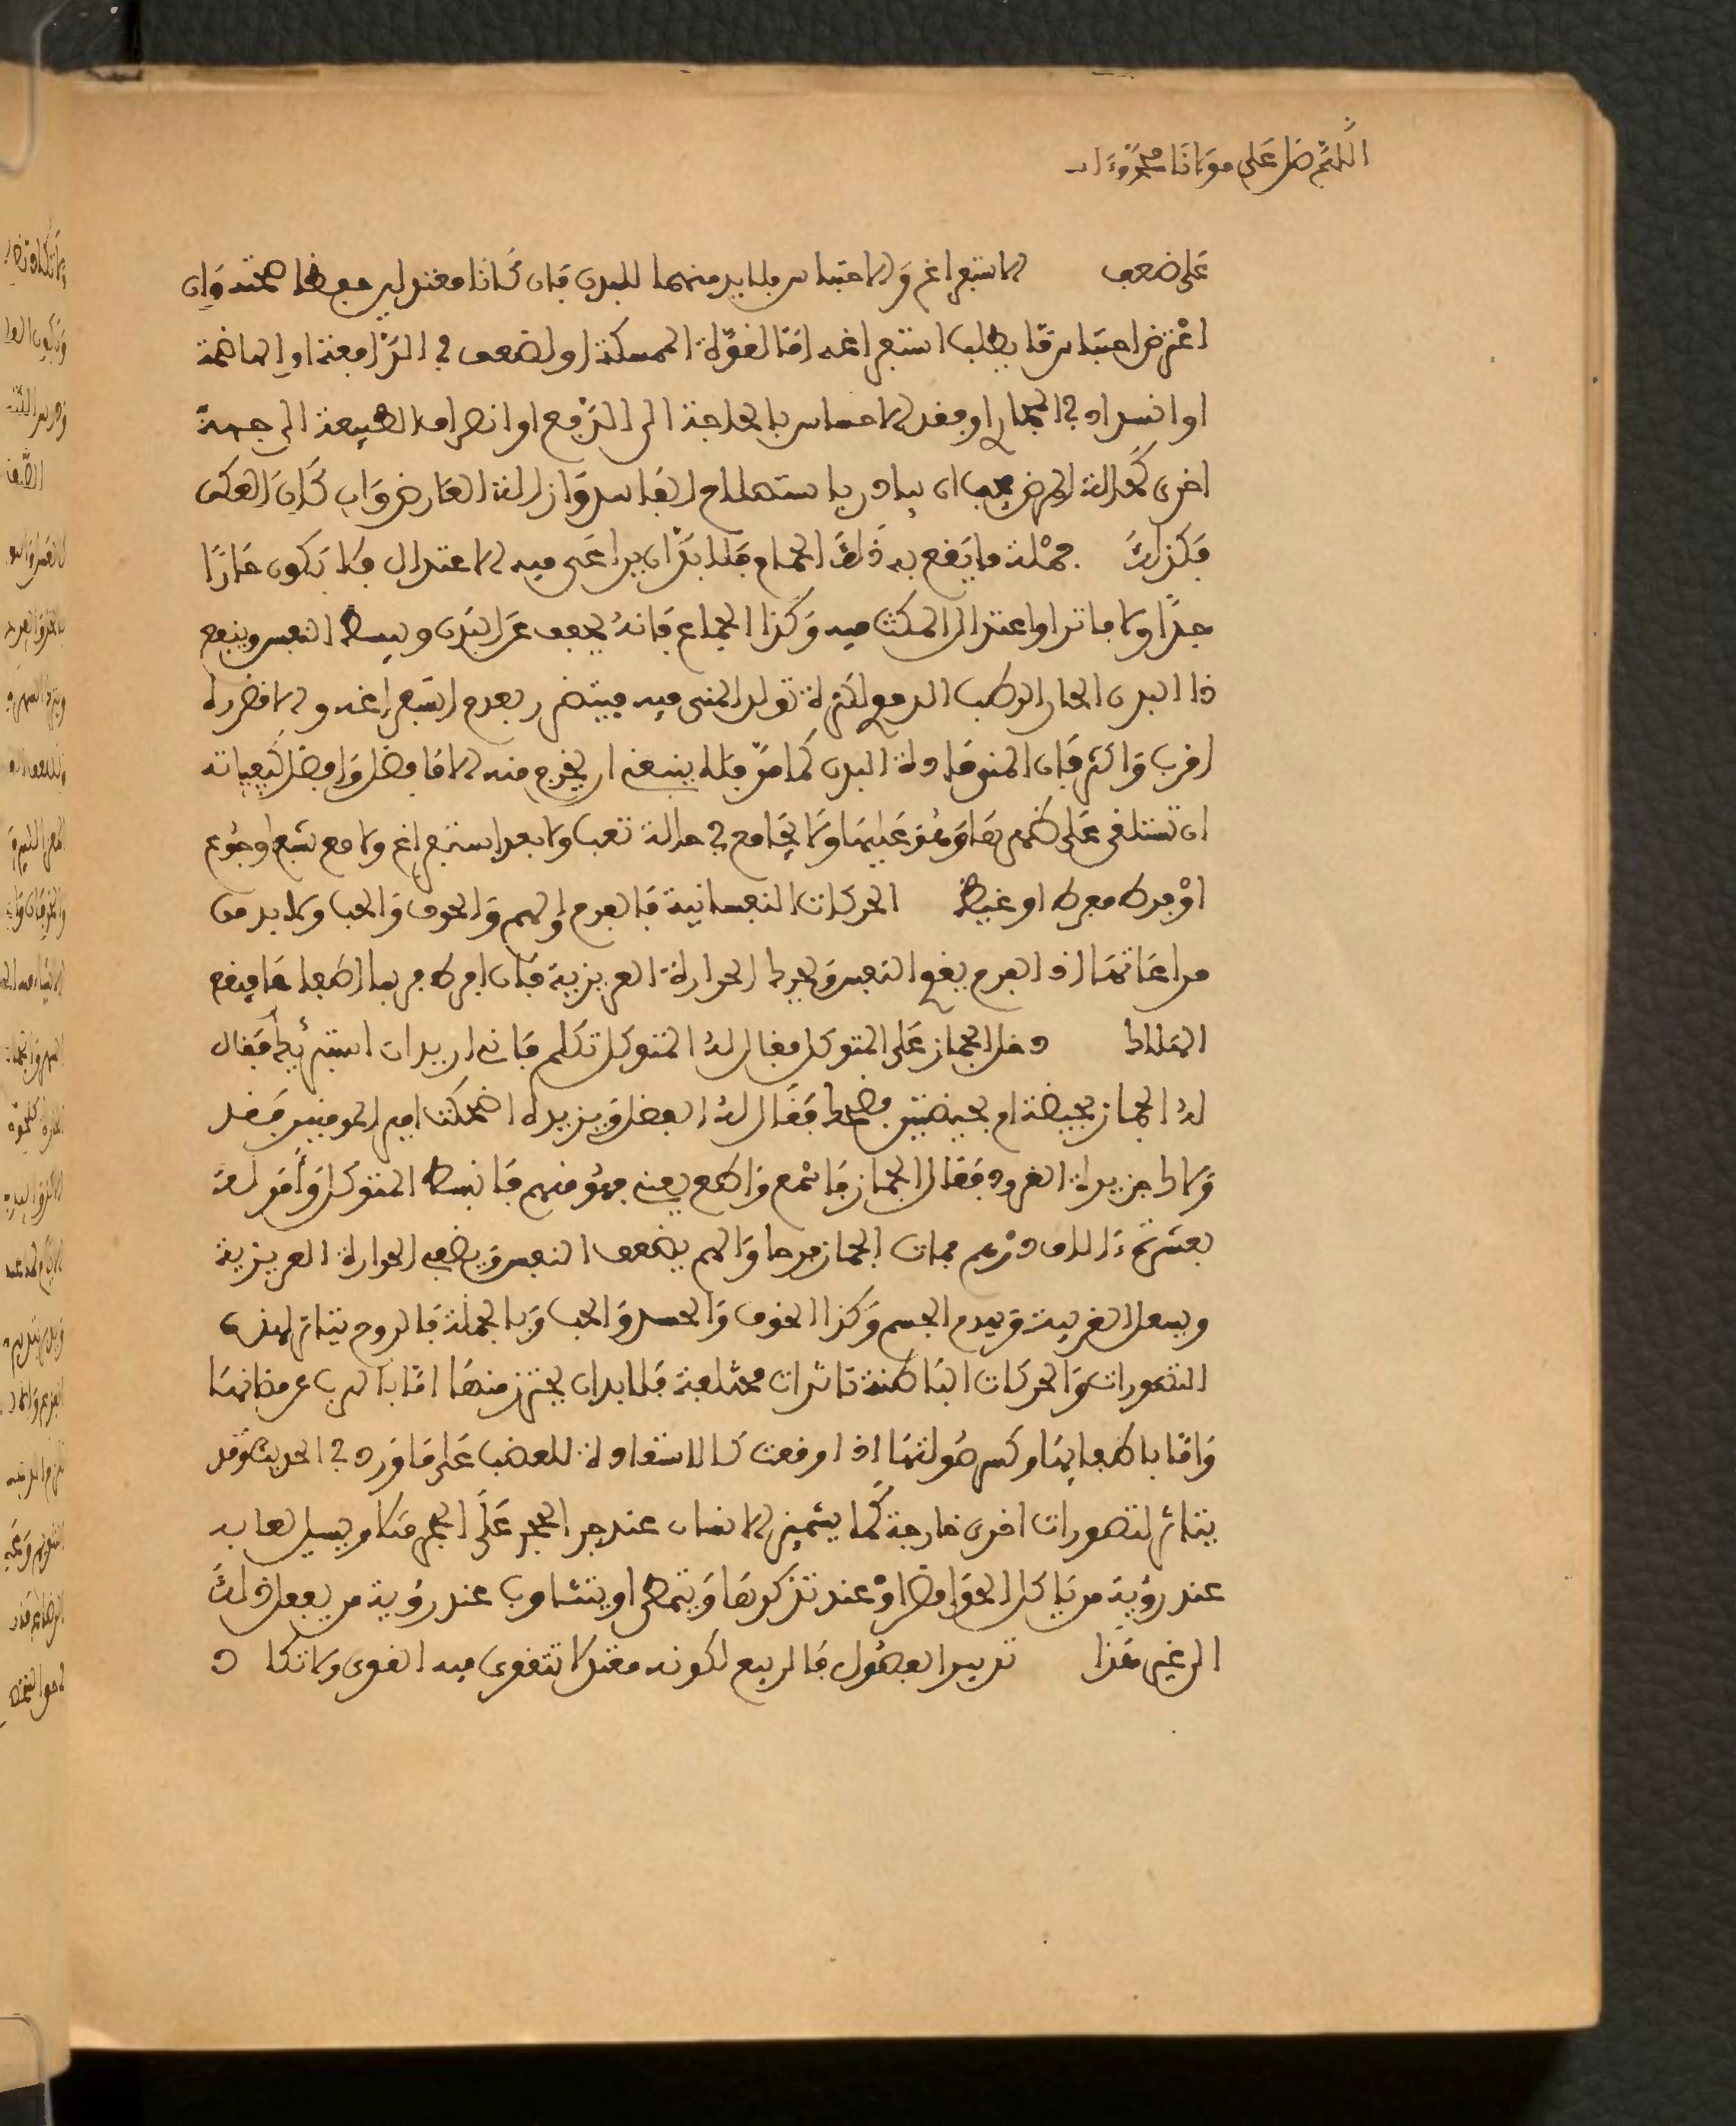 اللهم صل على مولانا محمد وءاله
على ضعف الاستفراغ والاحتباس فلا بد منهما للبدن فان كانا معتدلين حفظا صحته وان
اعترض احتباس ما يطلب استفراغه اما لقوة الممسكة او لضعف في الدافعة او الهاضمة
او انسداد في المجاري او فقد الاحساس بالحاجة الى الدفع او انصراف الطبيعة الى جهة
اخرى كحالة المرض يجب ان يبادر باستصلاح الفاسد وازالة العارض وان كان العكس
فكذلك جملة ما يقع به ذلك الحمام فلا بد ان يراعى فيه الاعتدال فلا تكون حارا
جدا ولا فاترا واعتدال المكث فيه وكذا الجماع فانه يخفف عن البدن ويبسط النفس وينفع
ذا البدن الحار الرطب الدموي لكثرة تولد المني فيه فيتضرر بعدم استفراغه والا فضرره
اقرب واكثر فان المني مادة البدن كما مر فلا ينبغي ان يخرج منه الا ما فضل وافضل كيفياته
ان تستلقي على ظهرها وهو عليها ولا يجامع في حالة تعب ولا بعد استفراغ ولا مع شبع او جوع
او فرط مفرط او غيظ الحركات النفسانية فالفرح والهم والخوف والحب ولا بد من
مراعاتها اذ الفرح يقوي النفس ويحرك الحرارة الغريزية فان افرط فربما اطفاها فيقع
الهلاك دخل الجماز على المتوكل فقال له المتوكل تكلم فاني اريد ان استبرئك فقال
له الجماز بحيضة ام بحيضتين فضحك فقال له الفضل ويزيده اضحكت امير المومنين فقد
ولاك جزيرة القرود فقال الجماز فاسمع واطع يعني فهو منهم فانبسط المتوكل وأمر له
بعشرة ءالاف درهم فمات الجماز فرحا والهم يضعف النفس ويطفي الحرارة الغريزية
ويشعل الغريبة ويهدم الجسم وكذا الخوف والحسد والحب وبالجملة فالروح يتاثر لهذه
التصورات والحركات الباطنة تاثرات مختلفة فلا بد ان يحترز منها اما بالهرب عن مظانها
واما باطفائها وكسر صولتها اذا وقعت كالاستعاذة للغضب على ما ورد في الحديث وقد
يتاثر لتصورات اخرى خارجة كما يشمئز الانسان عند جر الحجر على الحجر مثلا ويسيل لعابه
عند رؤية من ياكل الحوامض او عند تذكرها ويتمطى او يتثاوب عند رؤية من يفعل ذلك
الى غير هذا تدبير الفصول فالربيع لكونه معتدلا تتقوى فيه القوى ولا تكاد